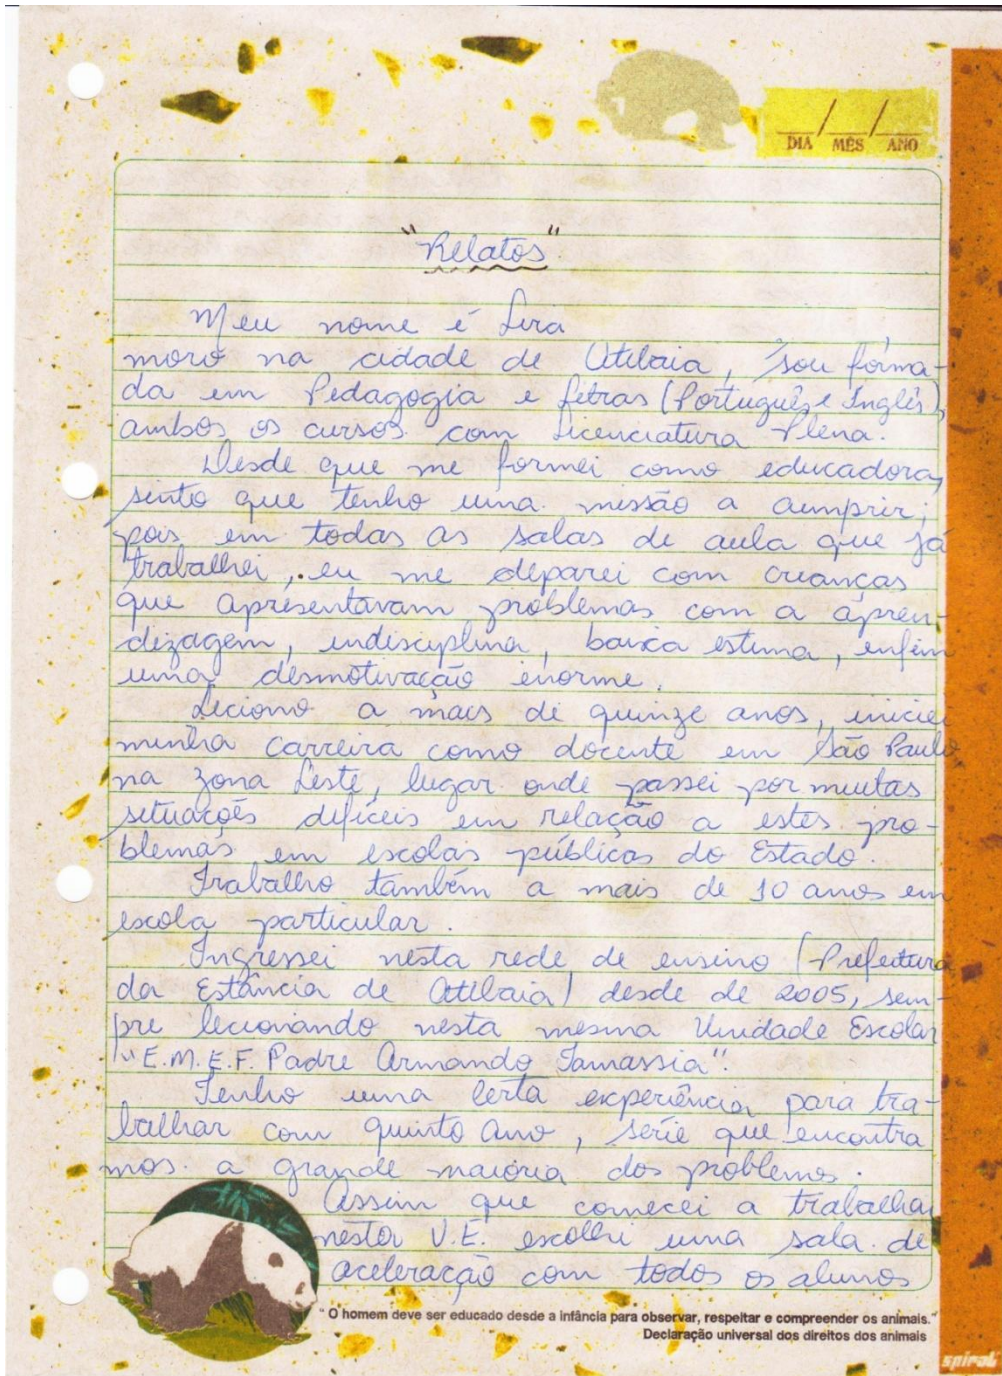 DIA / MÊS / ANO
"Relatos"
Meu nome é Lira
moro na cidade de Atibaia, sou forma-
da em Pedagogia e Letras (Português e Inglês),
ambos os cursos com Licenciatura Plena.
Desde que me formei como educadora,
sinto que tenho uma missão a cumprir;
pois em todas as salas de aula que já
trabalhei, eu me deparei com crianças
que apresentavam problemas com a apren-
dizagem, indisciplina, baixa estima, enfim
uma desmotivação enorme.
Leciono a mais de quinze anos, iniciei
minha carreira como docente em São Paulo
na zona Leste, lugar onde passei por muitas
situações difíceis em relação a estes pro-
blemas em escolas públicas do Estado.
Trabalho também a mais de 10 anos em
escola particular.
Ingressei nesta rede de ensino (Prefeitura
da Estância de Atibaia) desde de 2005, sem-
pre lecionando nesta mesma Unidade Escolar
"E.M.E.F. Padre Armando Tamassia".
Tenho uma certa experiência para tra-
balhar com quinto ano, série que encontra
mos a grande maioria dos problemas.
Assim que comecei a trabalhar
nesta U.E. escolhi uma sala de
aceleração com todos os alunos
"O homem deve ser educado desde a infância para observar, respeitar e compreender os animais."
Declaração universal dos direitos dos animais
spiral